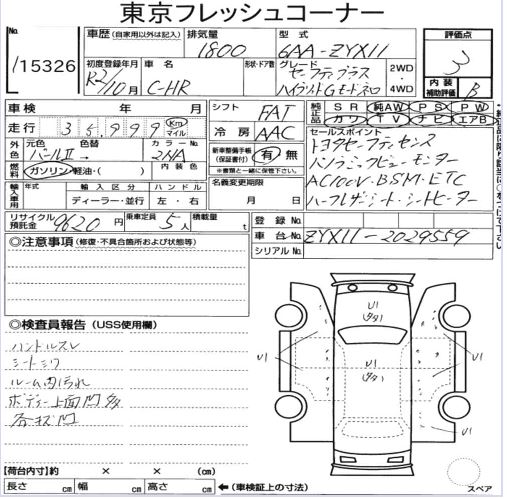 東京フレッシュコーナー
No.
15326
車歴 (自家用以外は記入)
排気量
1800
型式
6AA-ZYX11
評価点
初度登録年月
R2/10月
車名
C-HR
形状・ドア数
グレード
セーフティプラス
ハイブリッドGモードネロ
2WD
・
4WD
内装
補助評価
B
車検 年 月
走行 35,999 Km マイル
シフト
FAT
冷房
AAC
純正品
SR 純AW PS PW
カワ TV ナビ エアB
外色
元色
パールII
色替
→
カラーNo.
2NA
燃料
ガソリン・軽油・( )
内装色
新車整備手帳
(保証書付)
有・無
※書類と一緒に保管下さい。
名義変更期限
月 日
セールスポイント
トヨタセーフティセンス
パノラミックビューモニター
AC100V・BSM・ETC
ハーフレザーシート・シートヒーター
輸入車用
年式
輸入区分
ディーラー・並行
ハンドル
左・右
リサイクル
預託金
9620円
乗車定員
5人
積載量
t
登録No.
車台No.
ZYX11-2029559
シリアルNo.
◎注意事項 (修復・不具合箇所および状態等)
◎検査員報告 (USS使用欄)
ハンドルスレ
シートシワ
ルーム内汚れ
ボディー上面凹多
各キズ凹
U1
(タタリ)
U1
(タタリ)
U1
U1
U1
スペア
【荷台内寸】約 × × (cm)
長さ cm 幅 cm 高さ cm ←(車検証上の寸法)